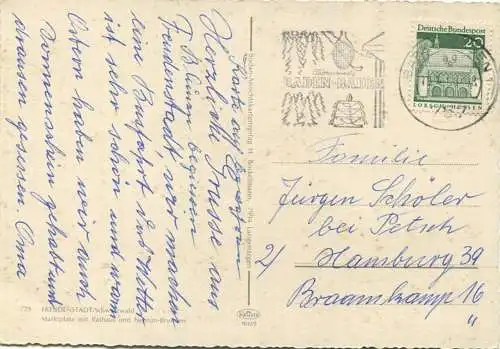 Karte auf Liegestuhl
Herzliche Grüsse aus
Freudenstadt, wir machen
eine Busfahrt, das Wetter
ist sehr schön und warm
Ostern haben wir auch
Sonnenschein gehabt und
draussen gesessen. Oma
779 FREUDENSTADT/Schwarzwald
Marktplatz mit Rathaus und Neptun-Brunnen
BADEN-BADEN
Deutsche Bundespost
20
LORSCH/HESSEN
Familie
Jürgen Schöler
bei Petsch
2/ Hamburg 39
Braamkamp 16